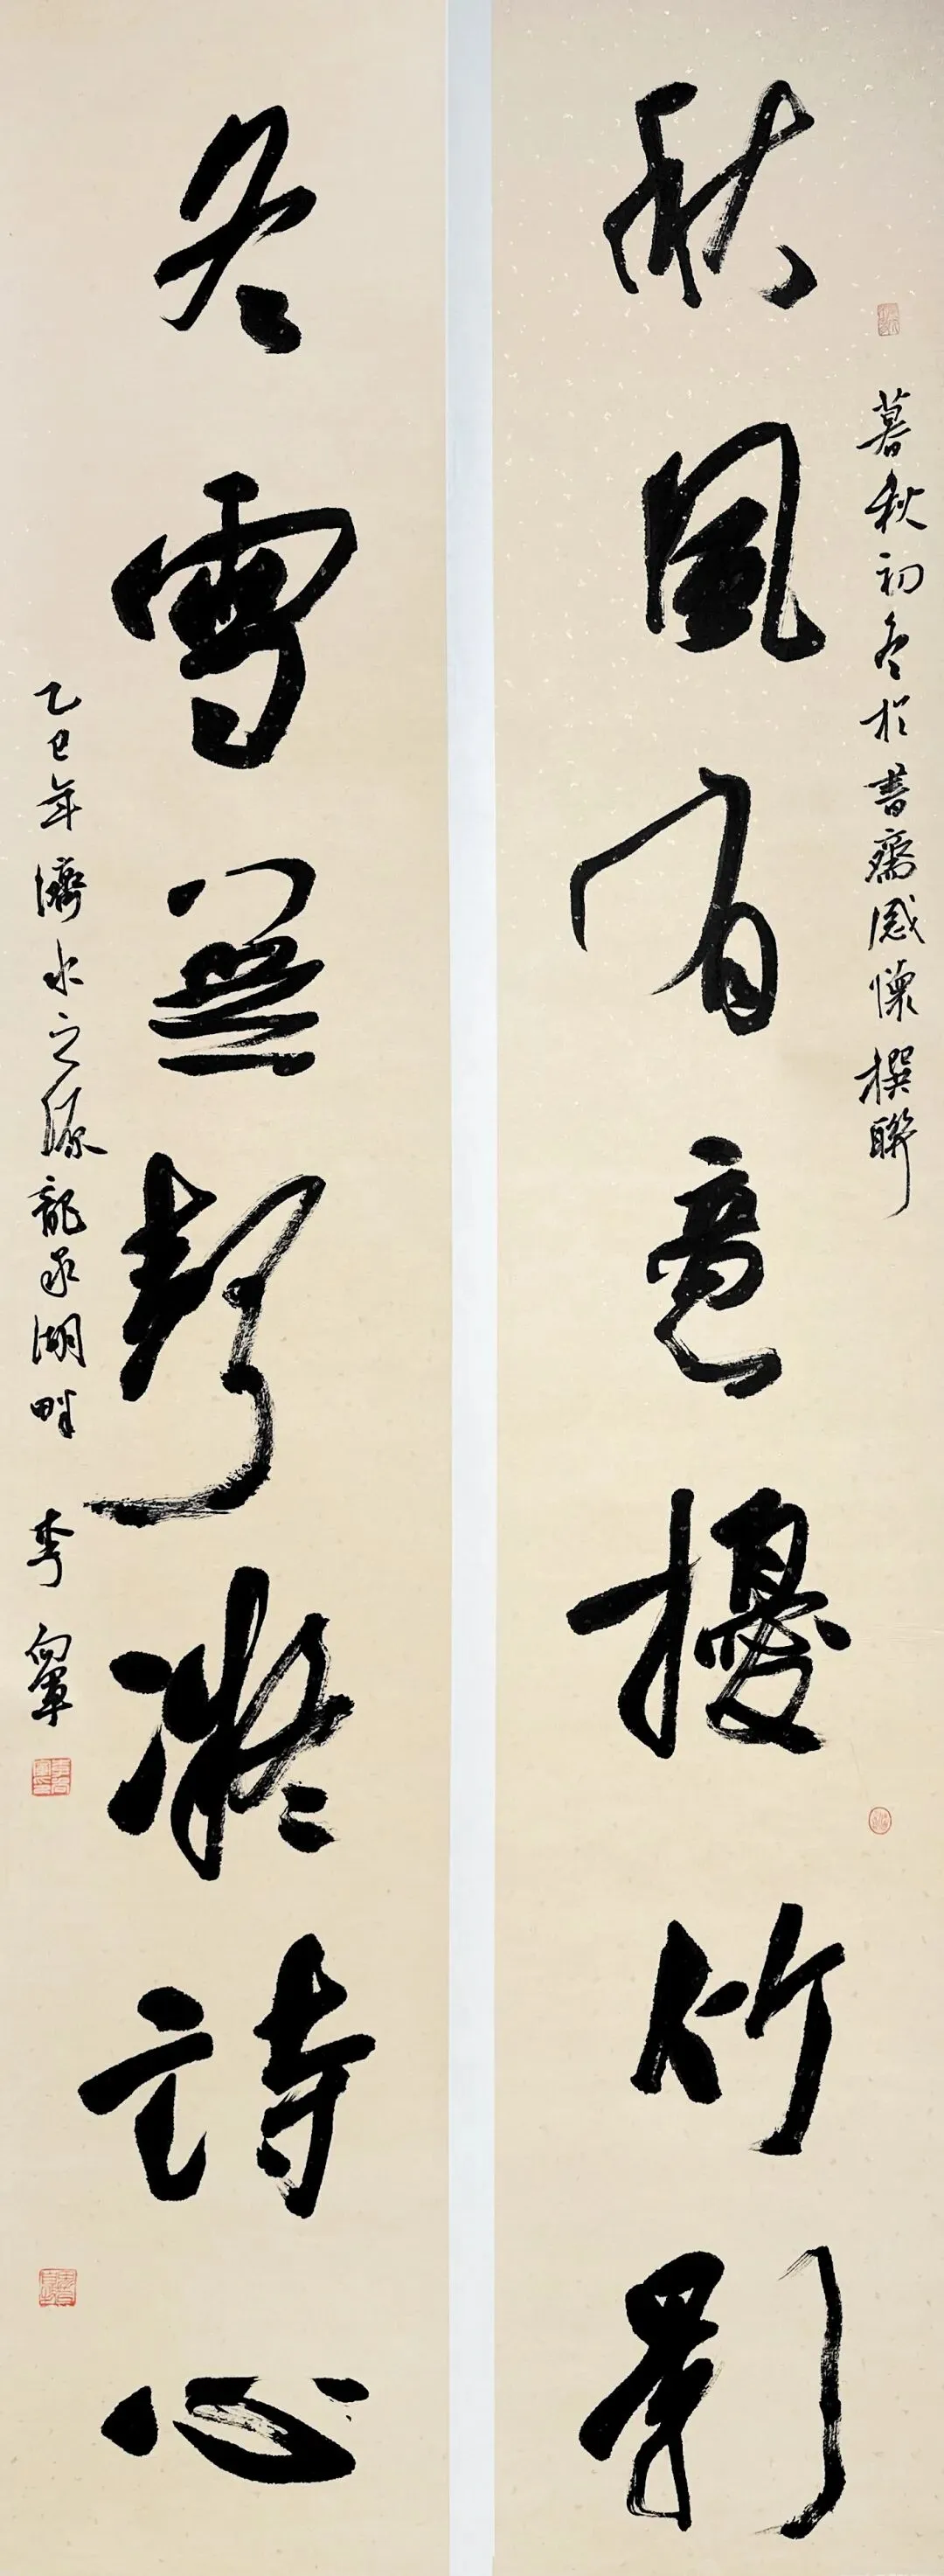 暮秋初冬於書齋感懷撰聯
秋風有意擾竹影
冬雪無聲凝詩心
乙巳年濟水之源龍泉湖畔李向軍